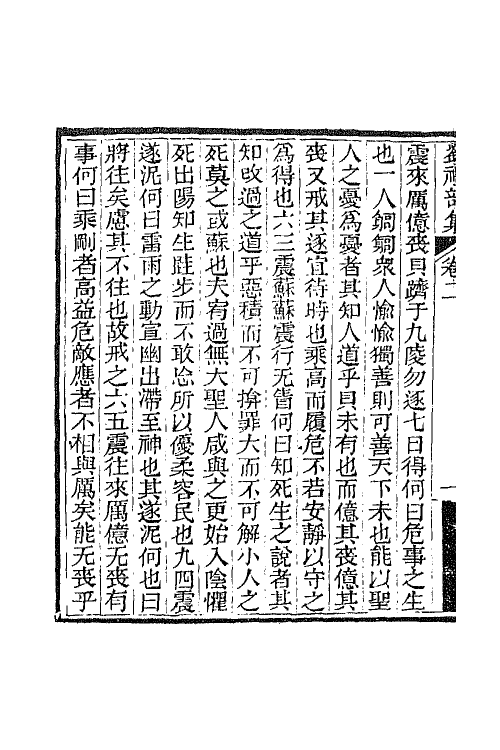 劉禮部集 卷二
震來厲億喪貝躋于九陵勿逐七日得何曰危事之生
也一人錭錭衆人愉愉獨善則可善天下未也能以聖
人之憂爲憂者其知人道乎貝未有也而億其喪億其
喪又戒其逐宜待時也乘高而履危不若安靜以守之
爲得也六三震蘇蘇震行无眚何曰知死生之說者其
知改過之道乎惡積而不可揜罪大而不可解小人之
死莫之或蘇也夫宥過無大聖人咸與之更始入陰懼
死出陽知生跬步而不敢忿所以優柔容民也九四震
遂泥何曰雷雨之動宣幽出滯至神也其遂泥何也曰
將往矣慮其不往也故戒之六五震往來厲億无喪有
事何曰乘剛者高益危敵應者不相與厲矣能无喪乎